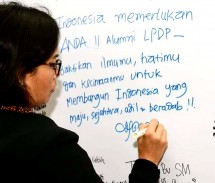 Indonesia memerlukan
ANDA !! Alumni LPDP –
ilmumu, hatimu
dan kecintaanmu untuk
membangun Indonesia yang
maju, sejahtera, adil + beradab !!
SM